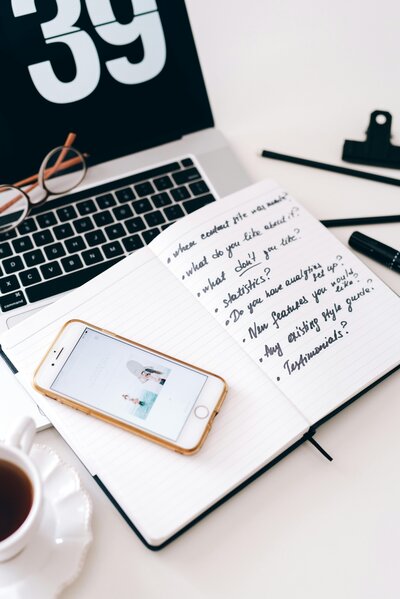 39
• Where content
• What do you like about it?
• what don't you like?
• statistics?
• Do you have analytics
set up?
• New features you would
like?
• Any existing style guide?
• Testimonials?